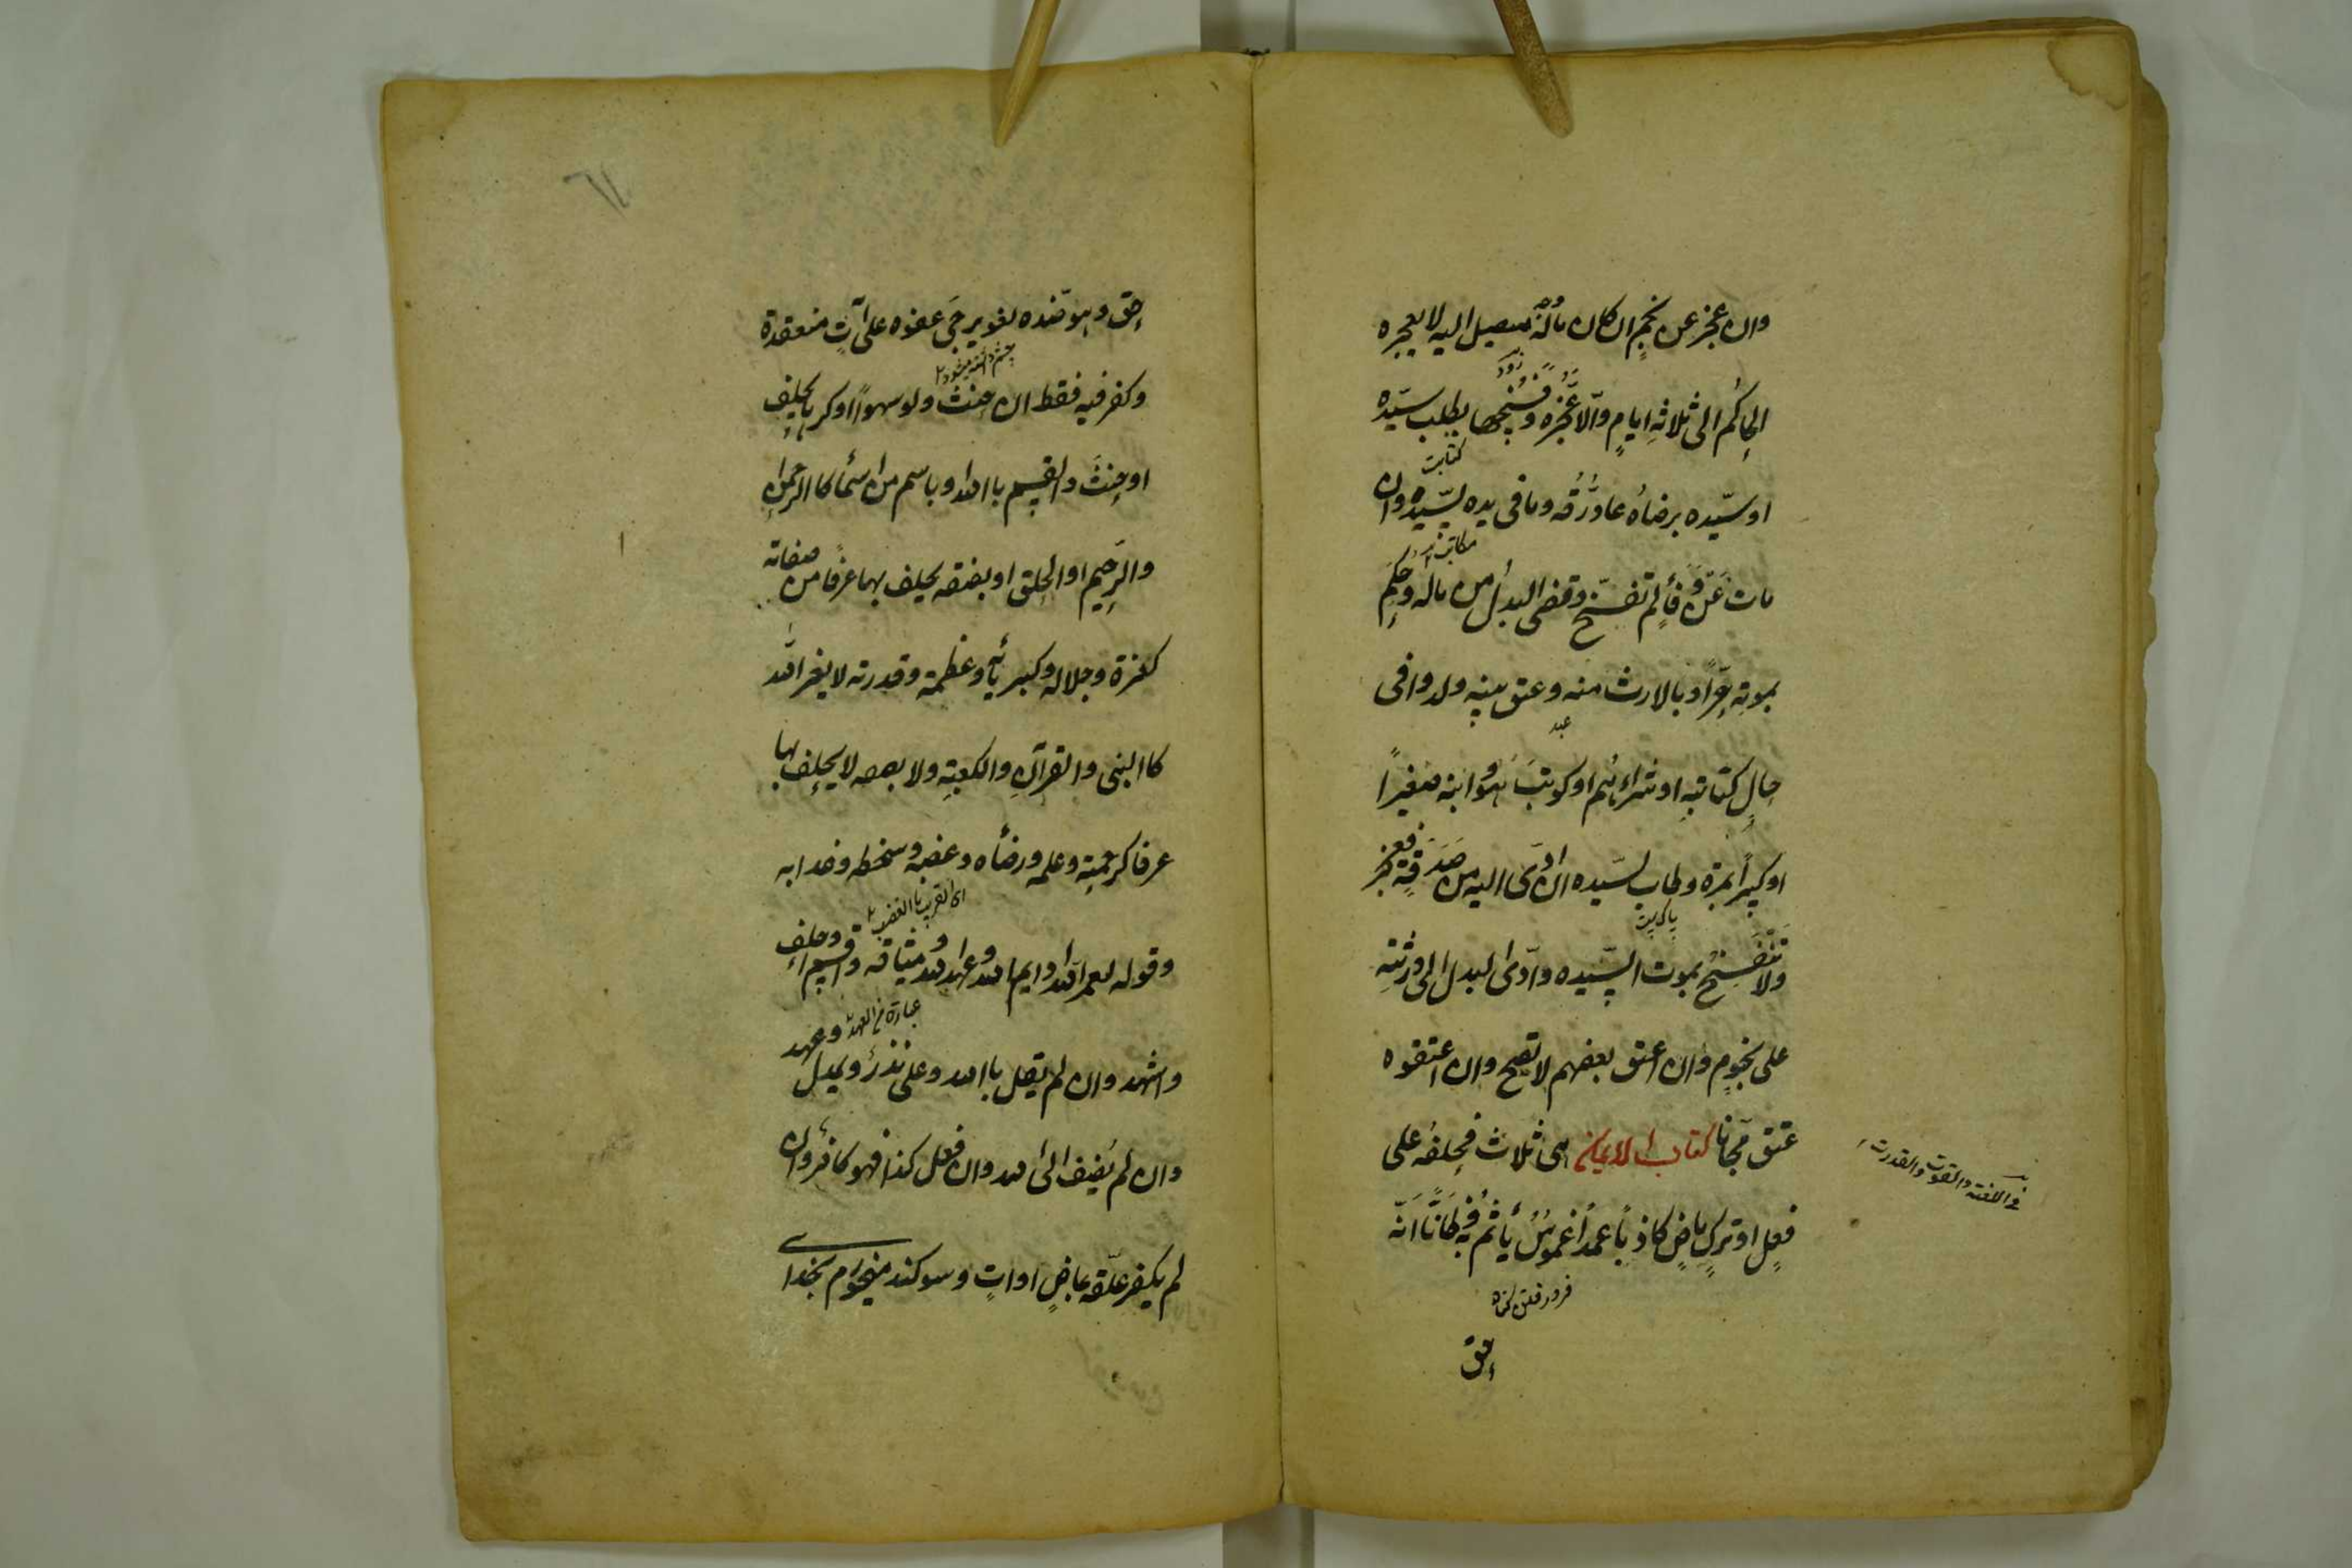 وان عجز عن نجم ان كان ماله سيصل اليه لا يعجزه
الحاكم الى ثلاثة ايام والا عجزه وفسخها بطلب سيده
او سيده برضاه عاد رقه وما فى يده لسيده وان
كتابت
مات عن وفاء لم تفسخ وقضى البدل من ماله وحكم
بموته حرا وبالارث منه وعتق بنيه ولدوا فى
حال كتابته او شراءهم او كوتب هو وابنه صغيرا
عبد
او كبيرا بمرة وطاب لسيده ان ادى اليه من صدقة فعجز
ولا تنفسخ بموت السيده وادى البدل الى ورثته
على نجوم وان اعتق بعضهم لا تصح وان اعتقوه
عتق مجانا كتاب الايمان هى ثلاث فحلفه على
فى اللغة القوت والقدرت
فعل او ترك ماض كاذبا عمدا غموس يأثم فيه وظانا انه
فرو رفتن گناه
حق
حق وهو ضده لغو يرجى عفوه على آت منعقدة
وكفر فيه فقط ان حنث ولو سهوا او كرها يحلف
او حنث والقسم باالله او باسم من اسمأ كاالرحمن
والرحيم او الحق او بصفة يحلف بها عرفا من صفاته
كعزة وجلاله وكبريائه وعظمته وقدرته لا بغير الله
كاالنبى والقرآن والكعبة ولا بصفه لا يحلف بها
عرفا كرحمته وعلمه ورضأه وغضبه وسخطه وعذابه
وقوله لعمر الله وايم الله وعهد الله وميثاقه واقسم واحلف
واشهد وان لم يقل باالله وعلى نذر ويمين وعهد
وان لم يضف الى الله وان فعل كذا فهو كافر وان
لم يكفر علقه بماض او آت وسوكند ميخورم بخداى